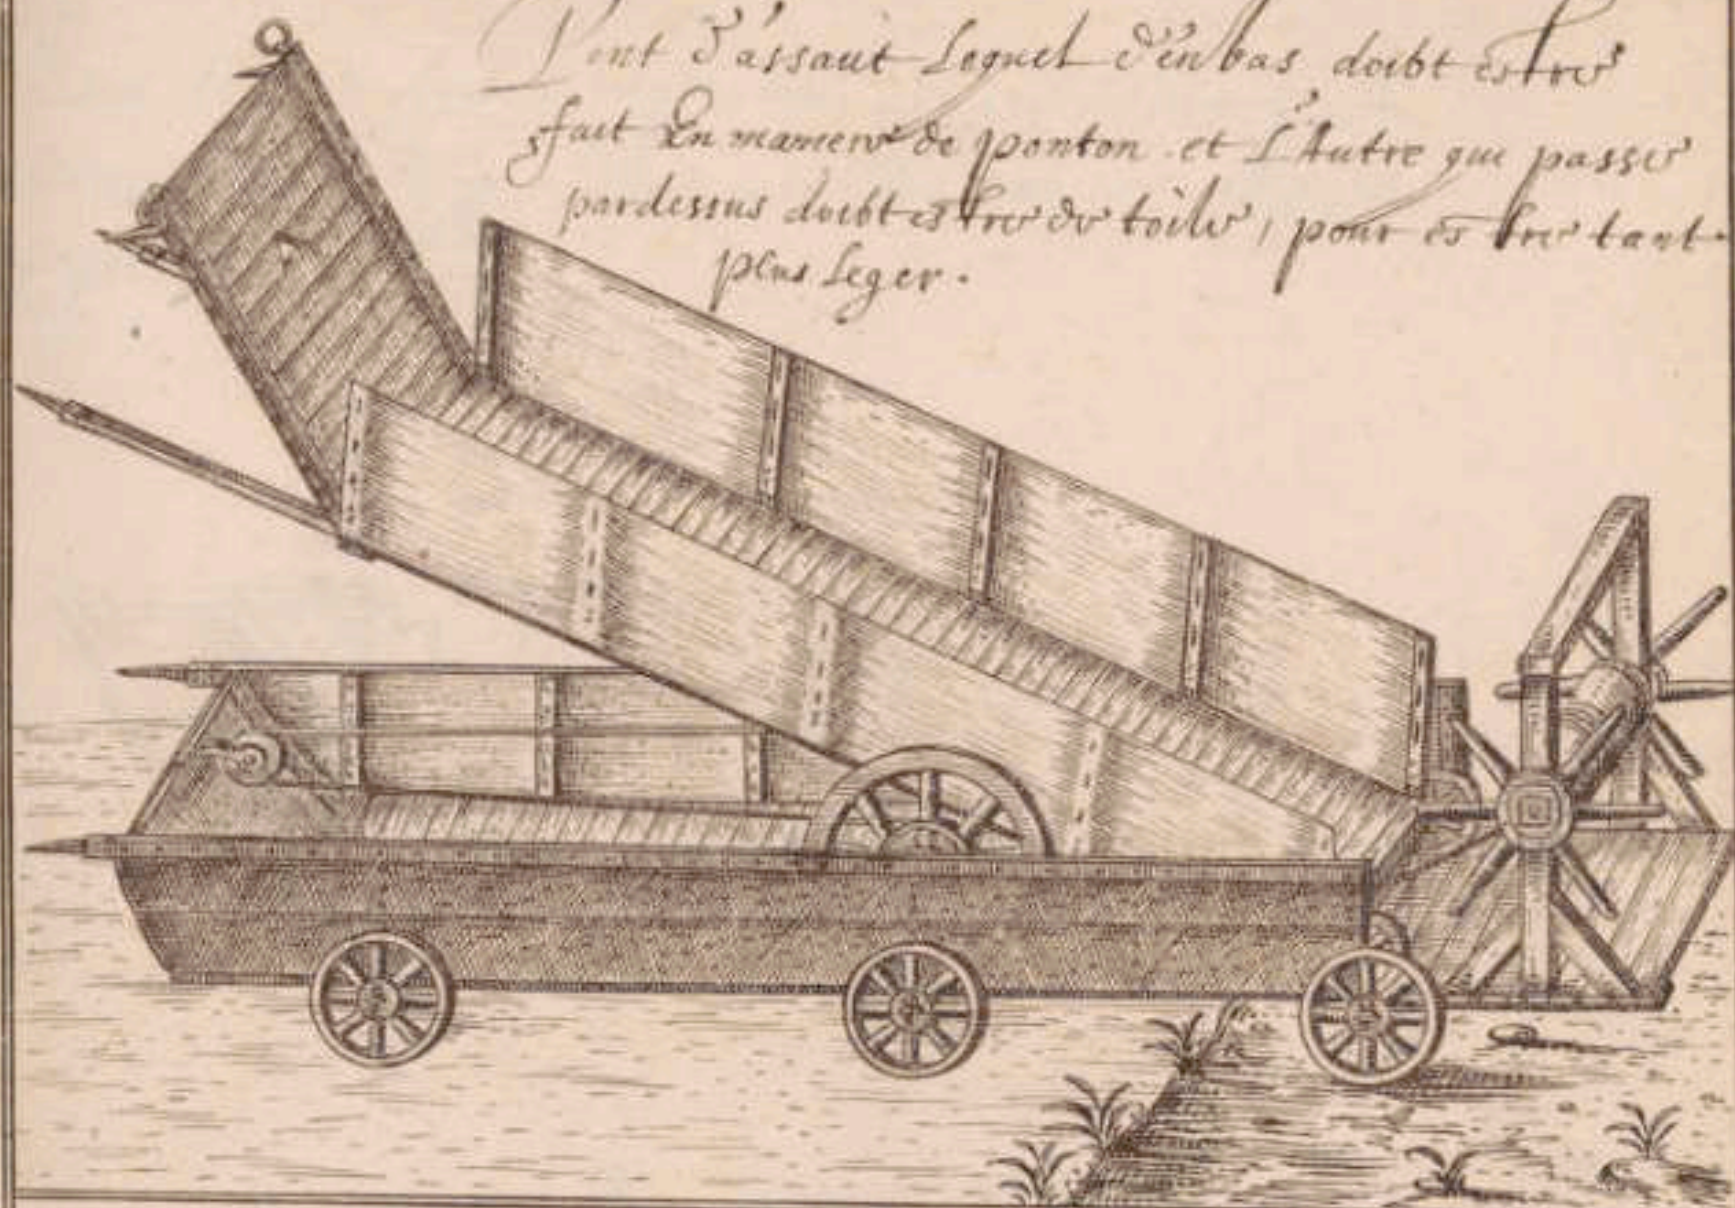 Pont d'assaut Lequel d'en bas doibt estre
fait En maniere de ponton et L'Autre qui passe
pardessus doibt estre de toile, pour estre tant
plus Leger.